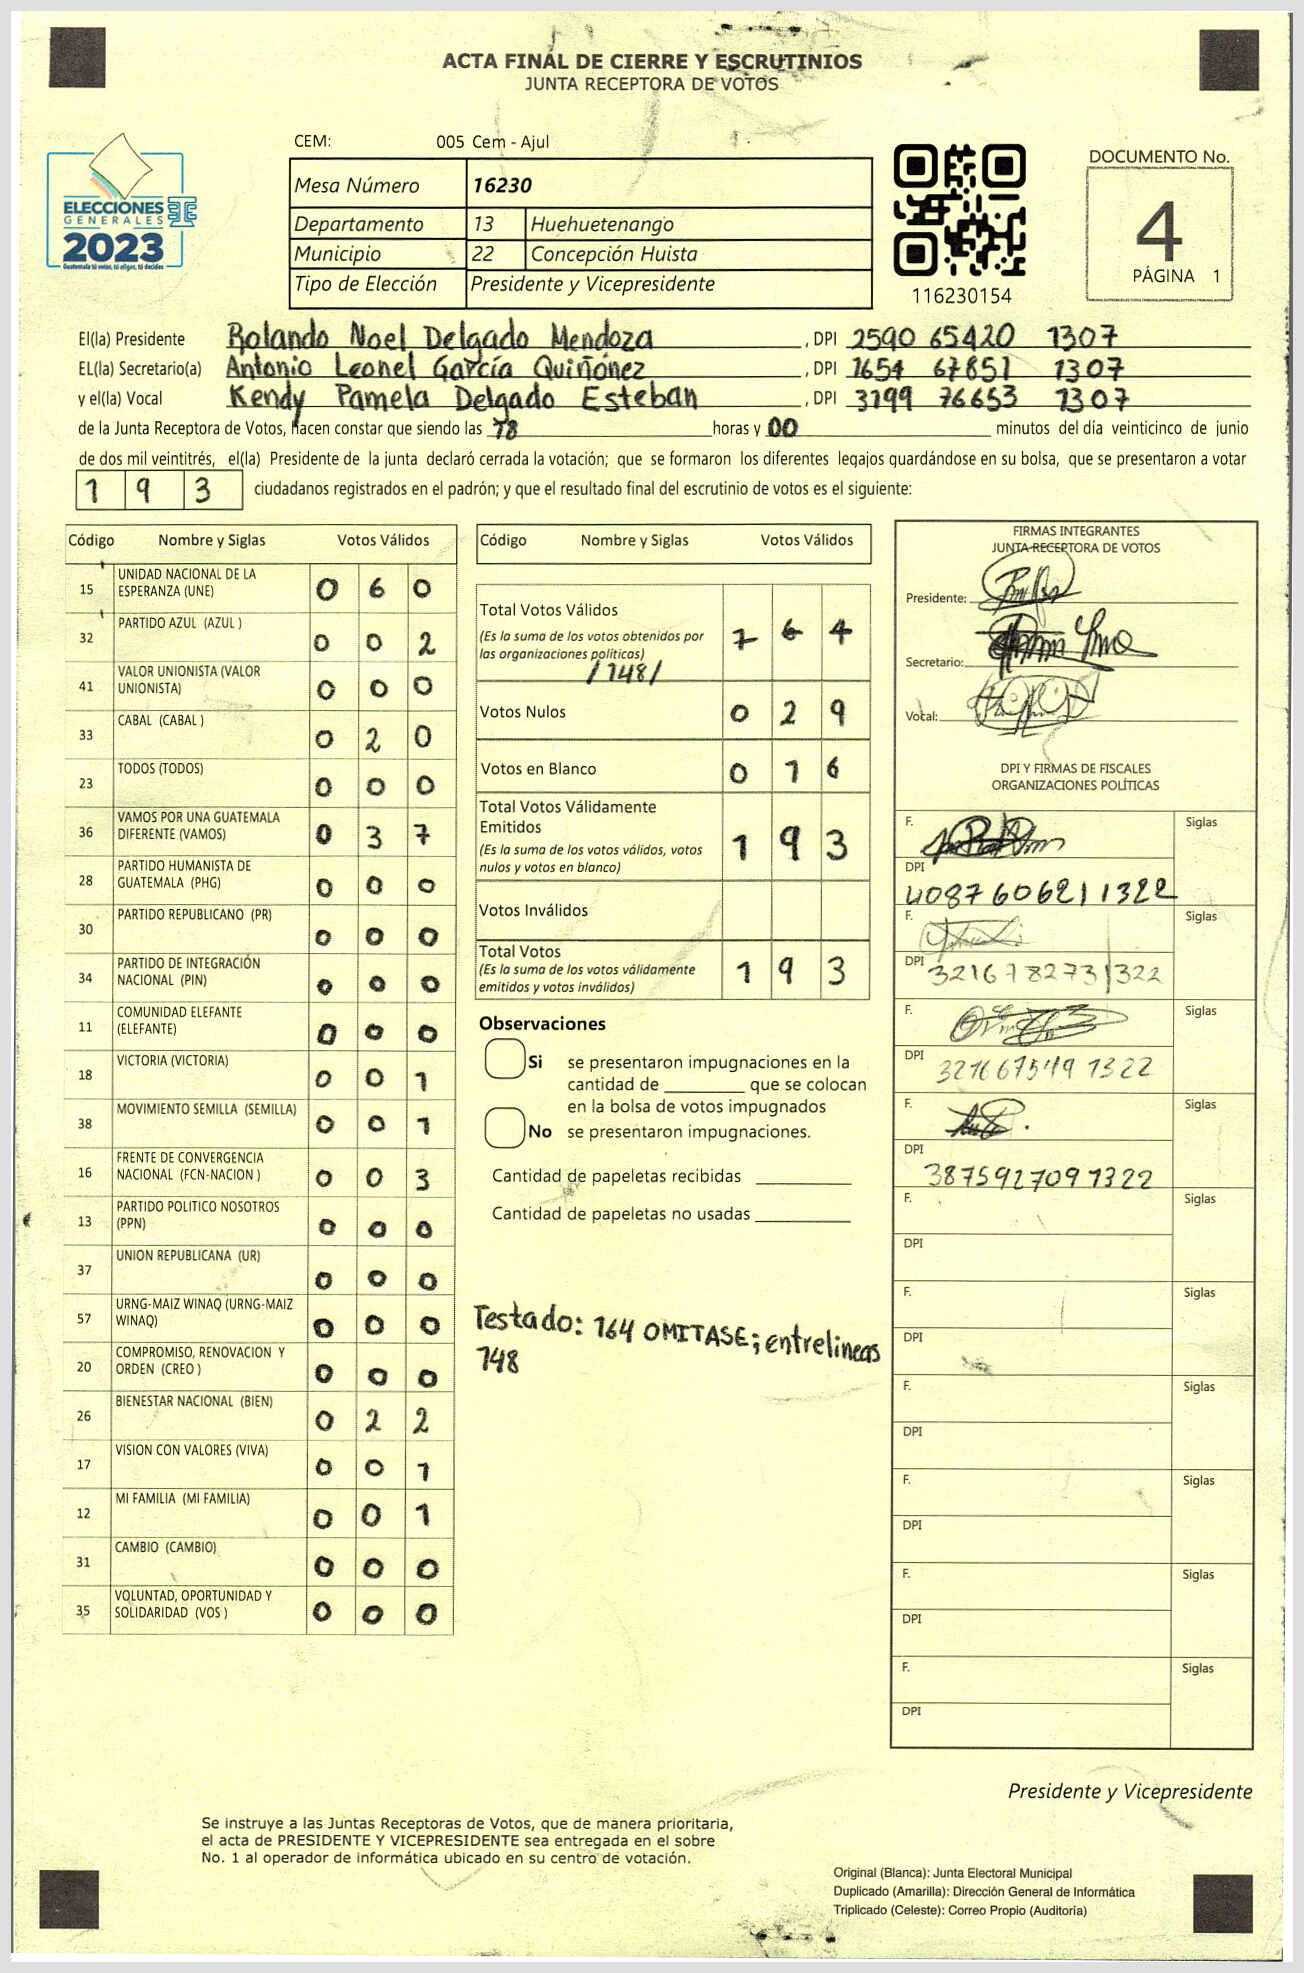 ACTA FINAL DE CIERRE Y ESCRUTINIOS
JUNTA RECEPTORA DE VOTOS
CEM: 005 Cem - Ajul
Mesa Número 16230
Departamento 13 Huehuetenango
Municipio 22 Concepción Huista
Tipo de Elección Presidente y Vicepresidente
ELECCIONES
GENERALES
2023
Guatemala tú votas, tú eliges, tú decides
116230154
DOCUMENTO No.
4
PÁGINA 1
El(la) Presidente Rolando Noel Delgado Mendoza, DPI 2590 65420 1307
EL(la) Secretario(a) Antonio Leonel García Quiñónez, DPI 1654 67851 1307
y el(la) Vocal Kendy Pamela Delgado Esteban, DPI 3199 76653 1307
de la Junta Receptora de Votos, hacen constar que siendo las 18 horas y 00 minutos del día veinticinco de junio
de dos mil veintitrés, el(la) Presidente de la junta declaró cerrada la votación; que se formaron los diferentes legajos guardándose en su bolsa, que se presentaron a votar
1 9 3 ciudadanos registrados en el padrón; y que el resultado final del escrutinio de votos es el siguiente:
Código Nombre y Siglas Votos Válidos
15 UNIDAD NACIONAL DE LA ESPERANZA (UNE) 0 6 0
32 PARTIDO AZUL (AZUL ) 0 0 2
41 VALOR UNIONISTA (VALOR UNIONISTA) 0 0 0
33 CABAL (CABAL ) 0 2 0
23 TODOS (TODOS) 0 0 0
36 VAMOS POR UNA GUATEMALA DIFERENTE (VAMOS) 0 3 7
28 PARTIDO HUMANISTA DE GUATEMALA (PHG) 0 0 0
30 PARTIDO REPUBLICANO (PR) 0 0 0
34 PARTIDO DE INTEGRACIÓN NACIONAL (PIN) 0 0 0
11 COMUNIDAD ELEFANTE (ELEFANTE) 0 0 0
18 VICTORIA (VICTORIA) 0 0 1
38 MOVIMIENTO SEMILLA (SEMILLA) 0 0 1
16 FRENTE DE CONVERGENCIA NACIONAL (FCN-NACION ) 0 0 3
13 PARTIDO POLITICO NOSOTROS (PPN) 0 0 0
37 UNION REPUBLICANA (UR) 0 0 0
57 URNG-MAIZ WINAQ (URNG-MAIZ WINAQ) 0 0 0
20 COMPROMISO, RENOVACION Y ORDEN (CREO ) 0 0 0
26 BIENESTAR NACIONAL (BIEN) 0 2 2
17 VISION CON VALORES (VIVA) 0 0 1
12 MI FAMILIA (MI FAMILIA) 0 0 1
31 CAMBIO (CAMBIO) 0 0 0
35 VOLUNTAD, OPORTUNIDAD Y SOLIDARIDAD (VOS ) 0 0 0
Código Nombre y Siglas Votos Válidos
Total Votos Válidos 1 6 4
(Es la suma de los votos obtenidos por
las organizaciones políticas)
/148/
Votos Nulos 0 2 9
Votos en Blanco 0 1 6
Total Votos Válidamente
Emitidos 1 9 3
(Es la suma de los votos válidos, votos
nulos y votos en blanco)
Votos Inválidos
Total Votos 1 9 3
(Es la suma de los votos válidamente
emitidos y votos inválidos)
Observaciones
Si se presentaron impugnaciones en la
cantidad de ________ que se colocan
en la bolsa de votos impugnados
No se presentaron impugnaciones.
Cantidad de papeletas recibidas
Cantidad de papeletas no usadas
Testado: 164 OMITASE; entrelineas
148
FIRMAS INTEGRANTES
JUNTA RECEPTORA DE VOTOS
Presidente:
Secretario:
Vocal:
DPI Y FIRMAS DE FISCALES
ORGANIZACIONES POLÍTICAS
F. Siglas
DPI 4087606211322
F. Siglas
DPI 3216782731322
F. Siglas
DPI
F. Siglas
DPI 3875927091322
F. Siglas
DPI
F. Siglas
DPI
F. Siglas
DPI
F. Siglas
DPI
F. Siglas
DPI
F. Siglas
DPI
Presidente y Vicepresidente
Se instruye a las Juntas Receptoras de Votos, que de manera prioritaria,
el acta de PRESIDENTE Y VICEPRESIDENTE sea entregada en el sobre
No. 1 al operador de informática ubicado en su centro de votación.
Original (Blanca): Junta Electoral Municipal
Duplicado (Amarilla): Dirección General de Informática
Triplicado (Celeste): Correo Propio (Auditoría)